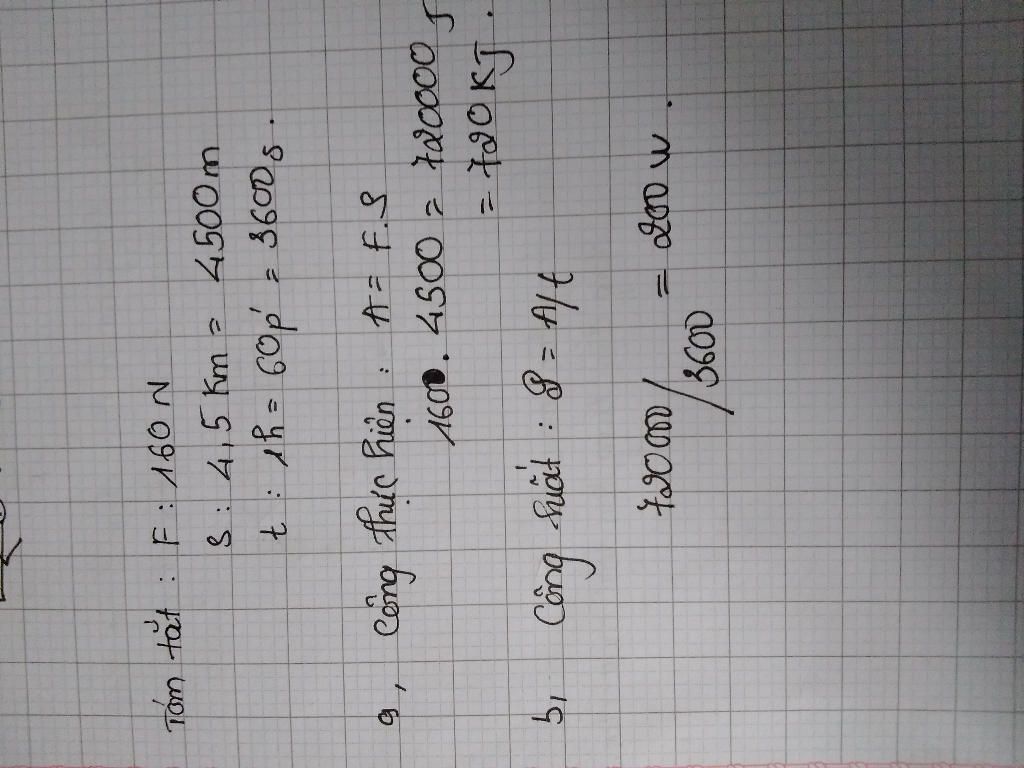 Tóm tắt : F : 160 N
S : 4,5 Km = 4500m
t : 1h = 60p' = 3600s.
a, Công thực hiện : A = F.S
160. 4500 = 720000 J
= 720 KJ.
b, Công suất : P = A/t
720000/3600 = 200 W.